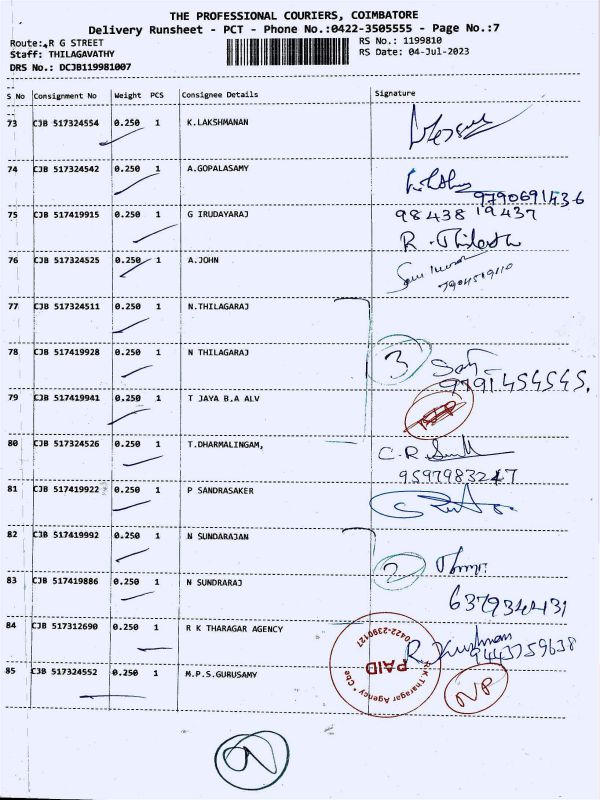 THE PROFESSIONAL COURIERS, COIMBATORE
Delivery Runsheet - PCT - Phone No.:0422-3505555 - Page No.:7
Route: R G STREET RS No.: 1199810
Staff: THILAGAVATHY RS Date: 04-Jul-2023
DRS No.: DCJB119981007
S No Consignment No Weight PCS Consignee Details Signature
73 CJB 517324554 0.250 1 K.LAKSHMANAN
74 CJB 517324542 0.250 1 A.GOPALASAMY
9790691436
75 CJB 517419915 0.250 1 G IRUDAYARAJ 98438 19437
R. Thilak
76 CJB 517324525 0.250 1 A.JOHN
7904519110
77 CJB 517324511 0.250 1 N.THILAGARAJ
78 CJB 517419928 0.250 1 N THILAGARAJ 3
9791454545.
79 CJB 517419941 0.250 1 T JAYA B.A ALV
80 CJB 517324526 0.250 1 T.DHARMALINGAM, C.R
9597983247
81 CJB 517419922 0.250 1 P SANDRASAKER
82 CJB 517419992 0.250 1 N SUNDARAJAN 2
83 CJB 517419886 0.250 1 N SUNDRARAJ 6379344131
84 CJB 517312690 0.250 1 R K THARAGAR AGENCY
9443759638
0422-2390127
PAID
R.K Tharagar Agency * Cbe
85 CJB 517324552 0.250 1 M.P.S.GURUSAMY NP